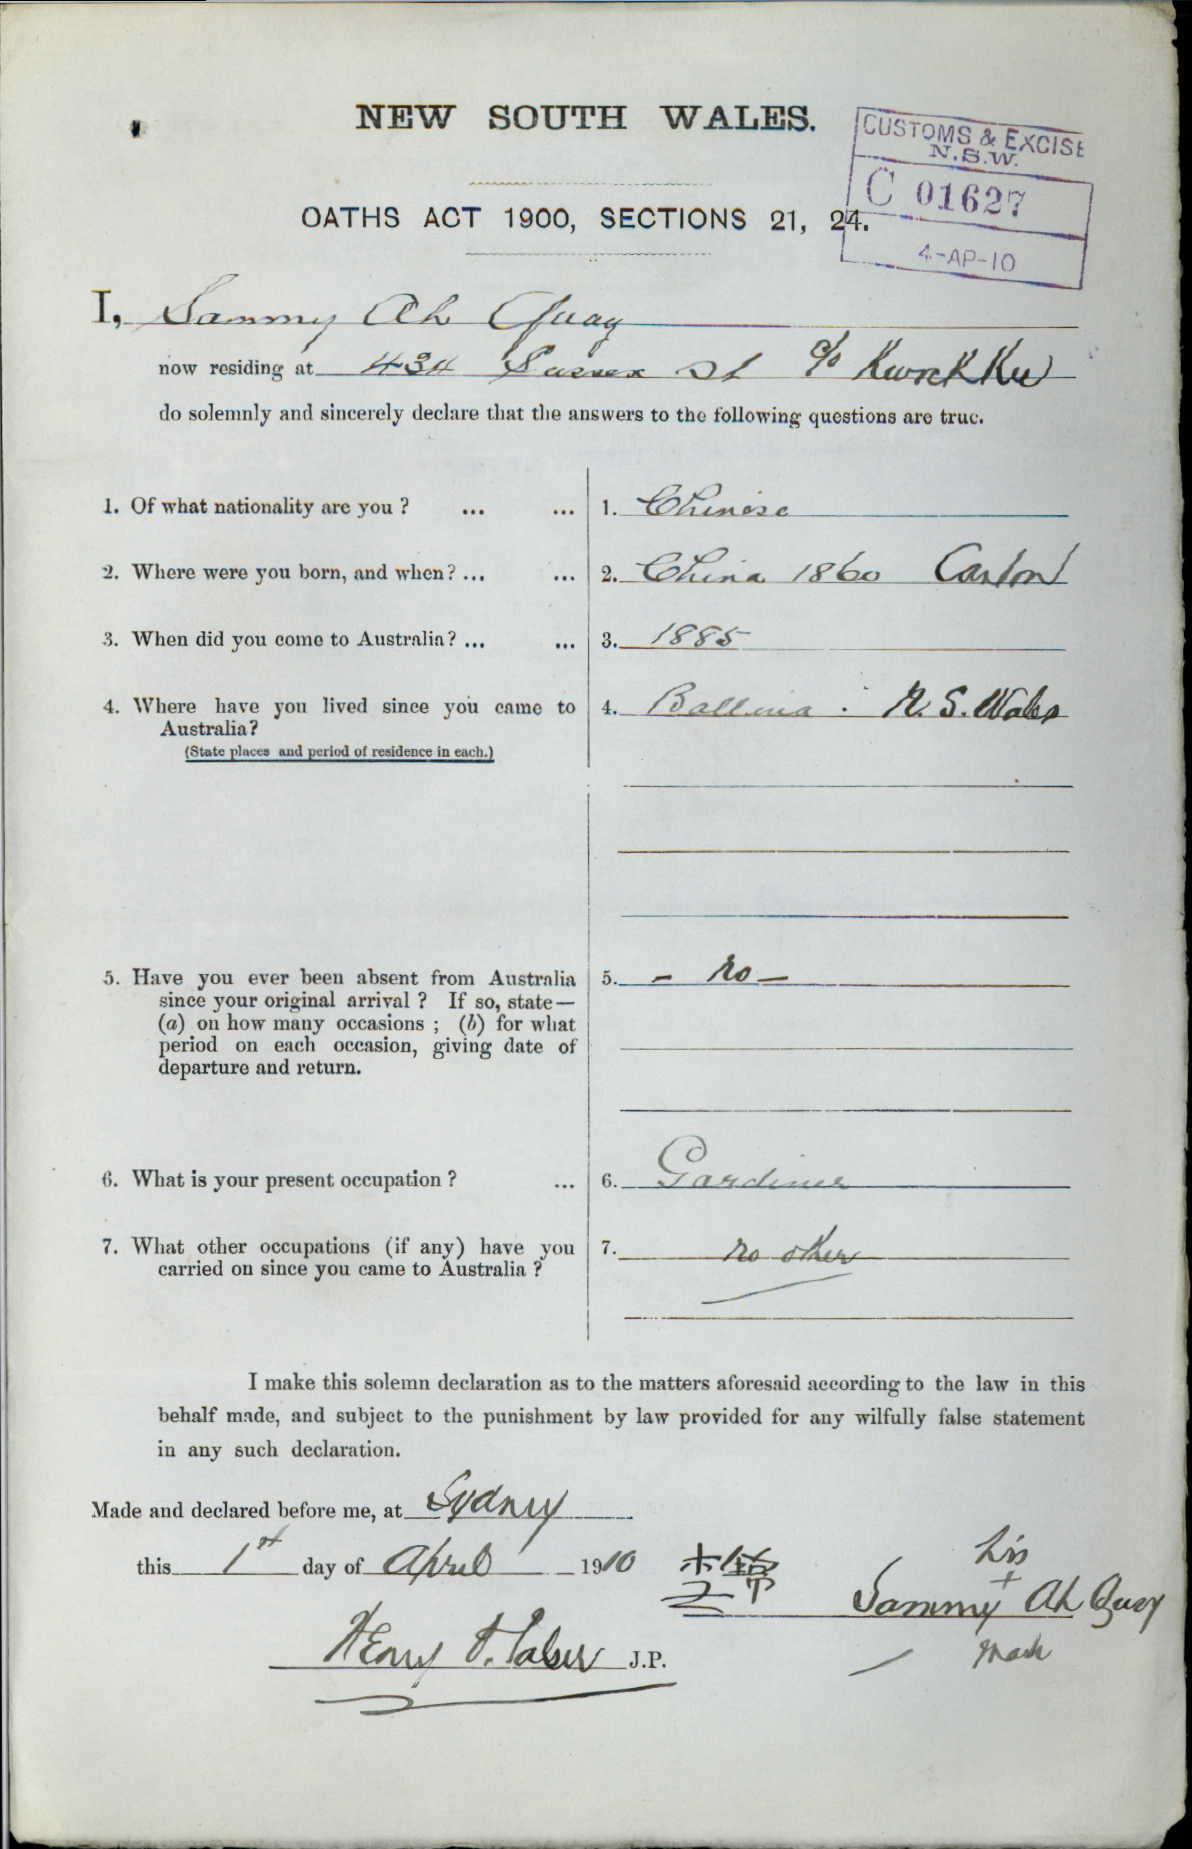 NEW SOUTH WALES.
CUSTOMS & EXCISE
N.S.W.
C 01627
4-AP-10
OATHS ACT 1900, SECTIONS 21, 24.
I, Sammy Ah Quay
now residing at 434 Sussex St c/o Kwock Kee
do solemnly and sincerely declare that the answers to the following questions are true.
1. Of what nationality are you ? ... ... 1. Chinese
2. Where were you born, and when? ... ... 2. China 1860 Canton
3. When did you come to Australia? ... ... 3. 1885
4. Where have you lived since you came to 4. Ballina . N. S. Wales
Australia?
(State places and period of residence in each.)
5. Have you ever been absent from Australia 5. - no -
since your original arrival ? If so, state—
(a) on how many occasions ; (b) for what
period on each occasion, giving date of
departure and return.
6. What is your present occupation ? ... 6. Gardiner
7. What other occupations (if any) have you 7. no other
carried on since you came to Australia ?
I make this solemn declaration as to the matters aforesaid according to the law in this
behalf made, and subject to the punishment by law provided for any wilfully false statement
in any such declaration.
Made and declared before me, at Sydney
this 1st day of April 1910
his
Sammy + Ah Quay
mark
Henry J.P.